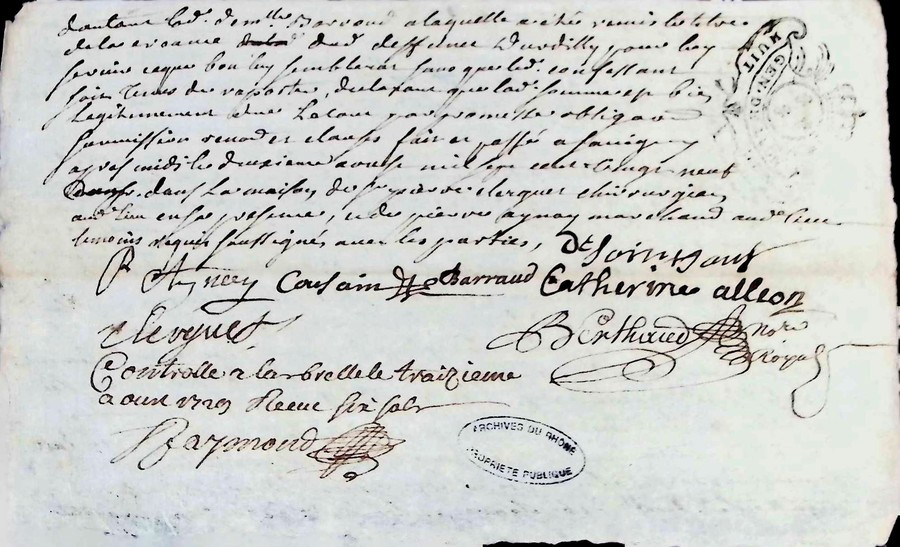 dautant lad. demlle Barroud a laquelle a eté remis le titre
de la creance dud. deffunct Dardilly pour sen
servir ce que bon luy semblera sans que led. confessant
soit tenus de rapporter, declarant que lad. somme est bien
legitimement due Le tout par promesse obligaon
soumission renoõn et clauses fait et passé a
apres midi le douzieme aoust mil sept cent vingt neuf
dans la maison de Sr pierre clerguet chirurgien
aud. lieu en sa presence, et de pierre aynay marchand aud. lieu
temoins requis soussignés avec les parties,
P Ayney Cousain Barraud Catherine alleon
clerguet Berthaud Nore Royal
Controllé a larbrelle le traizieme
aout 1729 Receu six sols
Raymond
HUIT
GEN. D
ARCHIVES DU RHÔNE
PROPRIÉTÉ PUBLIQUE